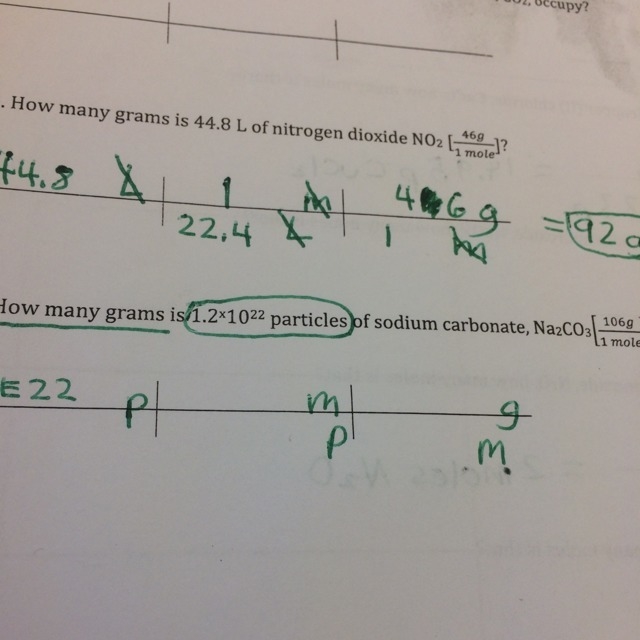 occupy?
. How many grams is 44.8 L of nitrogen dioxide NO₂ [46g/1 mole]?
44.8 L | 1 m | 46 g
22.4 L | 1 m = 92 g
How many grams is 1.2×10²² particles of sodium carbonate, Na₂CO₃[106g/1 mole
E22 p | m | g
p | m